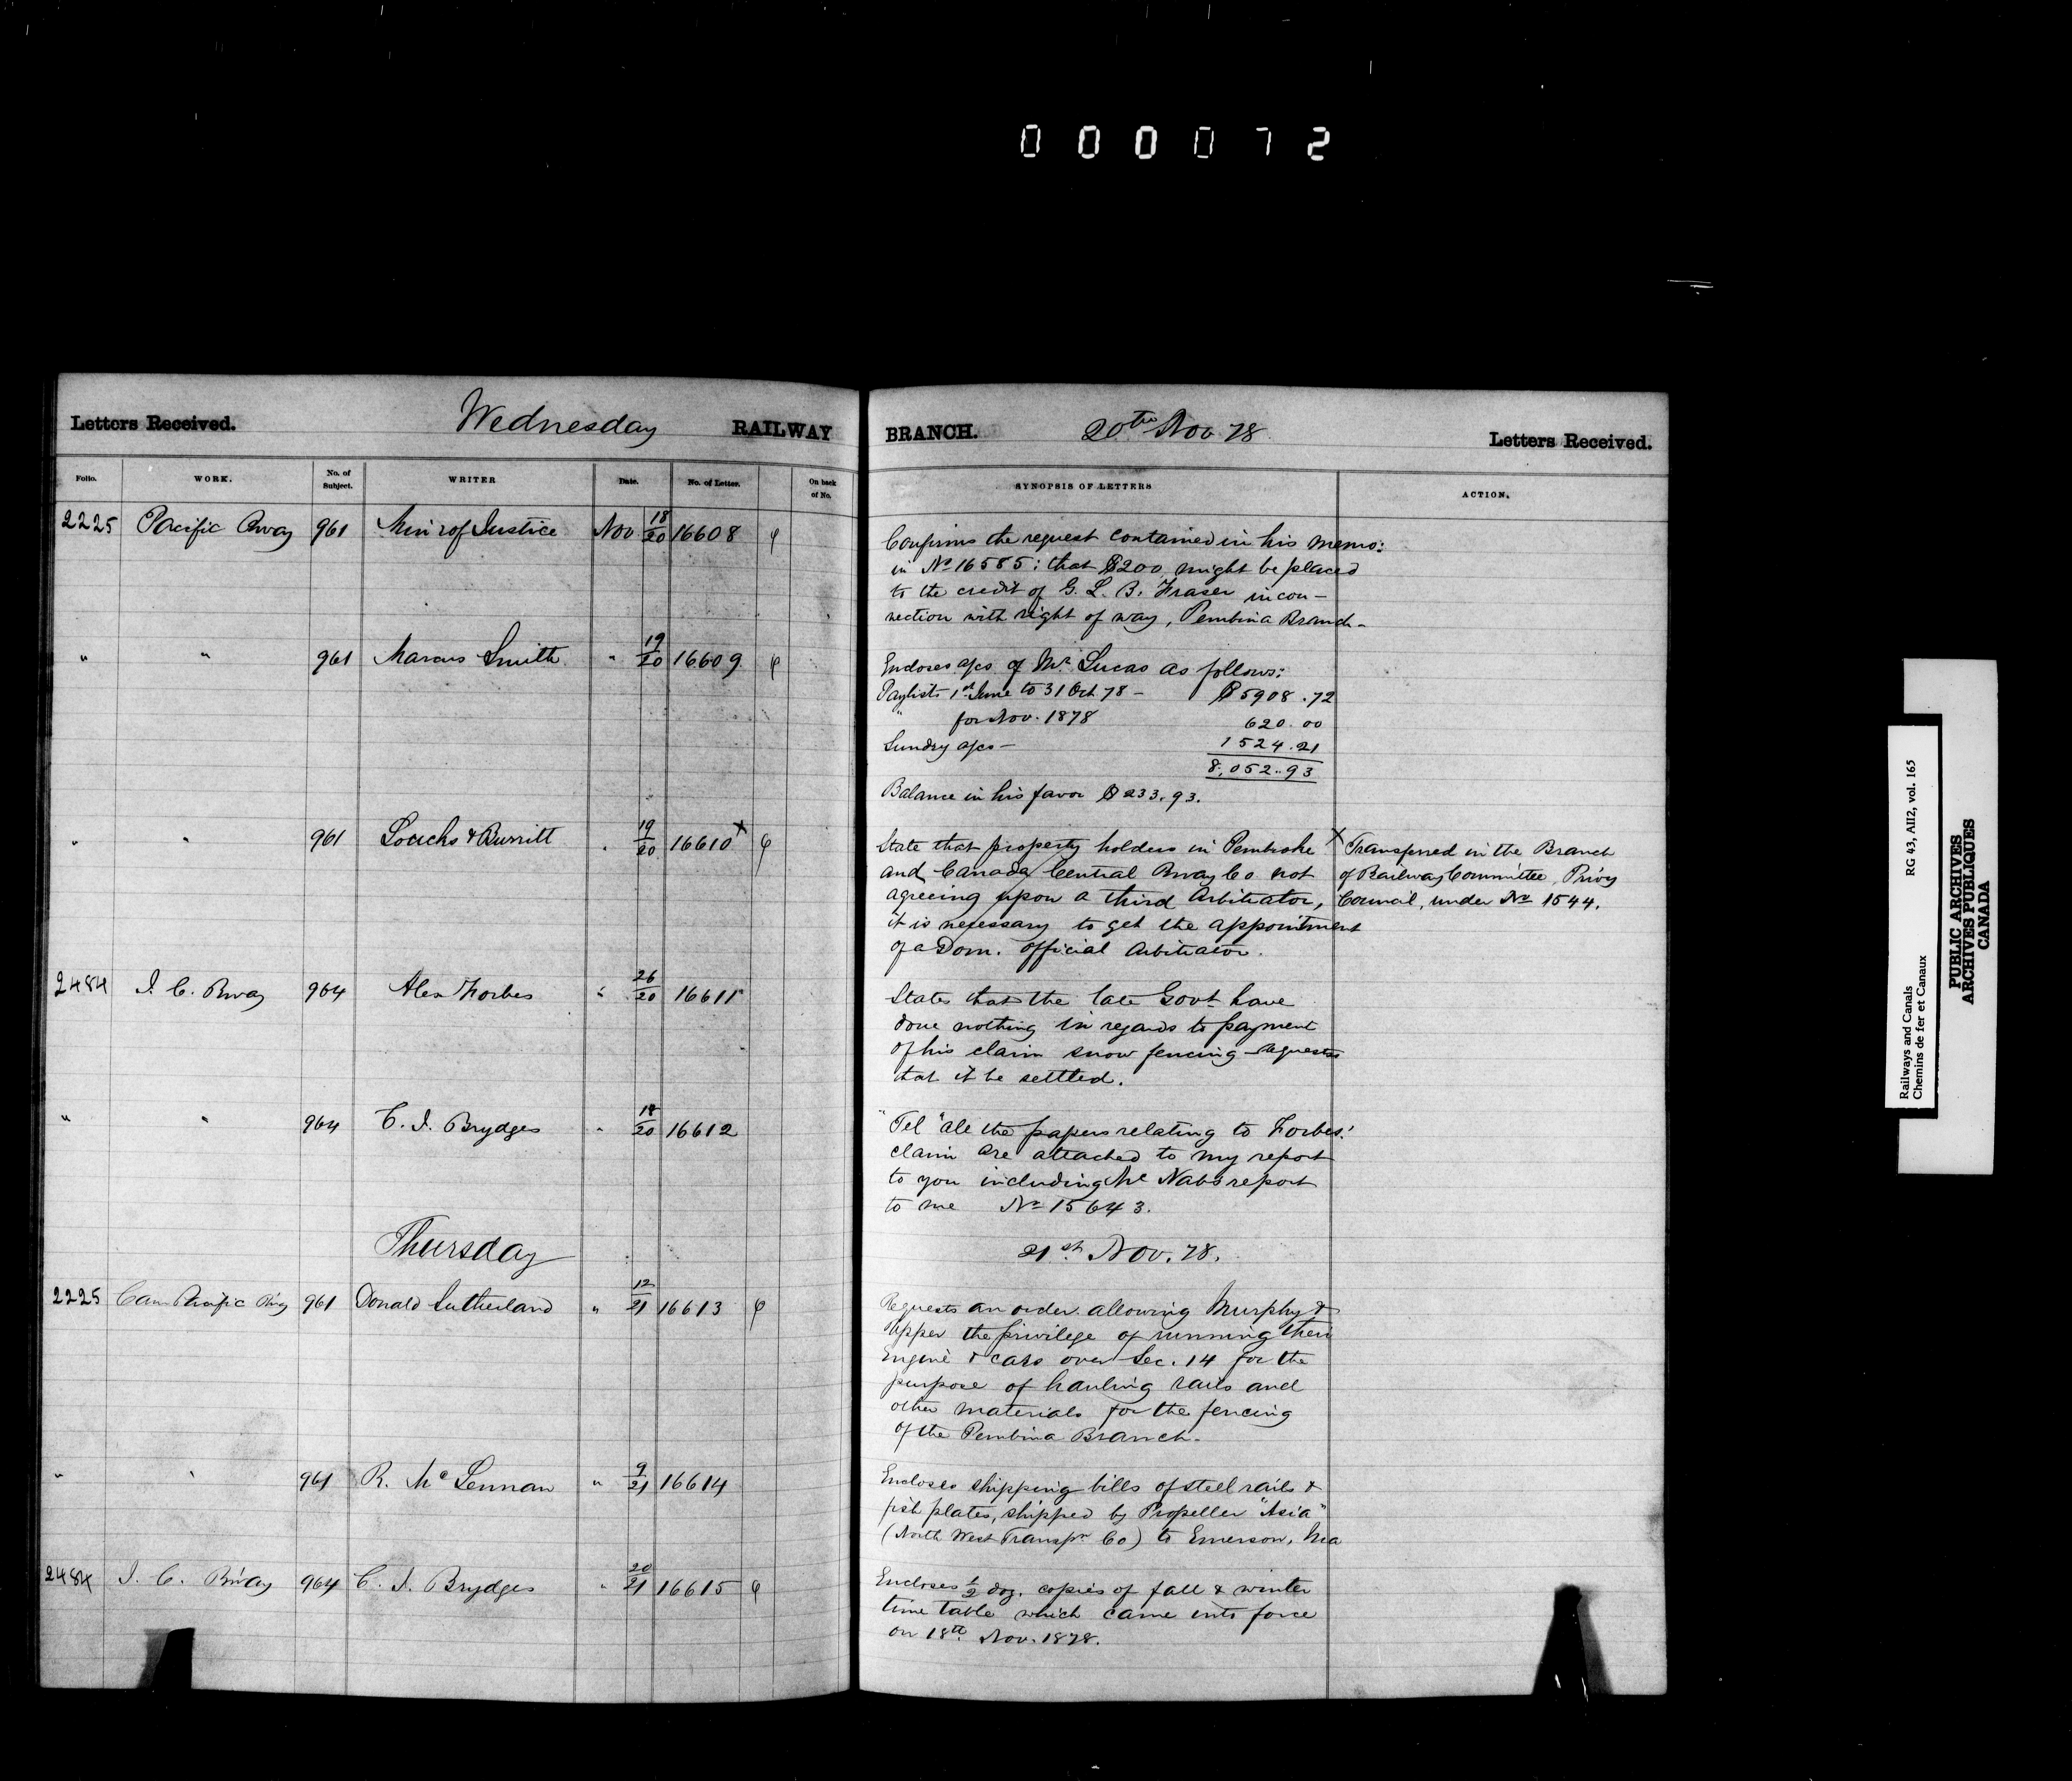 000072
Letters Received. Wednesday RAILWAY BRANCH. 20th Nov. 78 Letters Received.
Folio. WORK. No. of Subject. WRITER Date. No. of Letter. On back of No. SYNOPSIS OF LETTERS ACTION.
2225 Pacific Rway 961 Min'r of Justice Nov 18/20 16608 φ
Confirms the request contained in his memo:
in No 16585: that $200 might be placed
to the credit of G. L. B. Fraser in con-
nection with right of way, Pembina Branch-
" " 961 Marcus Smith " 19/20 16609 φ
Encloses a/cs of Mr Lucas as follows:
Paylists 1st June to 31 Oct 78 - $5908.72
" for Nov. 1878 620.00
Sundry a/cs - 1524.21
8,052.93
Balance in his favor $233.93.
" " 961 Loucks & Burritt " 19/20 16610 x φ
State that property holders in Pembroke
and Canada Central Rway Co not
agreeing upon a third Arbitrator,
it is necessary to get the appointment
of a Dom. official Arbitrator.
x Transferred in the Branch
of Railway Committee Privy
Council, under No 1544.
2484 I. C. Rway 964 Alex Forbes " 26/20 16611
States that the late Govt have
done nothing in regards to payment
of his claim snow fencing - Requests
that it be settled.
" " 964 C. J. Brydges " 18/20 16612
"Tel" all the papers relating to Forbes'
claim are attached to my report
to you including McNabs report
to me No 15643.
Thursday 21st Nov. 78.
2225 Can Pacific Rwy 961 Donald Sutherland " 12/21 16613 φ
Requests an order allowing Murphy &
Upper the privilege of running their
Engine & cars over Sec. 14 for the
purpose of hauling rails and
other materials for the fencing
of the Pembina Branch.
" " 961 R. McLennan " 9/21 16614
Encloses shipping bills of steel rails &
fish plates, shipped by Propeller "Asia"
(North West Transpn Co) to Emerson, Ma
2484 I. C. Rway 964 C. J. Brydges " 20/21 16615 φ
Encloses ½ doz. copies of fall & winter
time table which came into force
on 18th Nov. 1878.
Railways and Canals RG 43, AII2, vol. 165
Chemins de fer et Canaux
PUBLIC ARCHIVES
ARCHIVES PUBLIQUES
CANADA